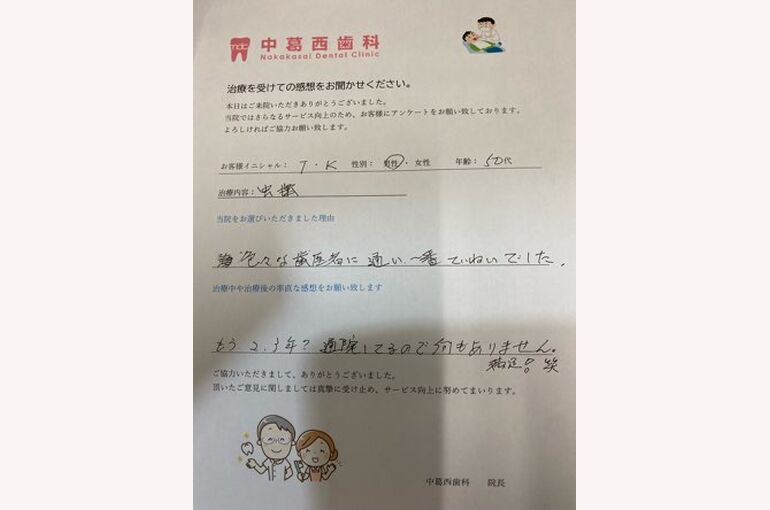 mdc
中葛西歯科
Nakakasai Dental Clinic
治療を受けての感想をお聞かせください。
本日はご来院いただきありがとうございました。
当院ではさらなるサービス向上のため、お客様にアンケートをお願い致しております。
よろしければご協力お願い致します。
お客様イニシャル： T・K 性別： 男性・女性 年齢： 50代
治療内容： 虫歯
当院をお選びいただきました理由
色々な歯医者に通い一番ていねいでした。
治療中や治療後の率直な感想をお願い致します
もう2.3年？通院してるので何もありません。
満足! 笑
ご協力いただきまして、ありがとうございました。
頂いたご意見に関しましては真摯に受け止め、サービス向上に努めてまいります。
中葛西歯科 院長